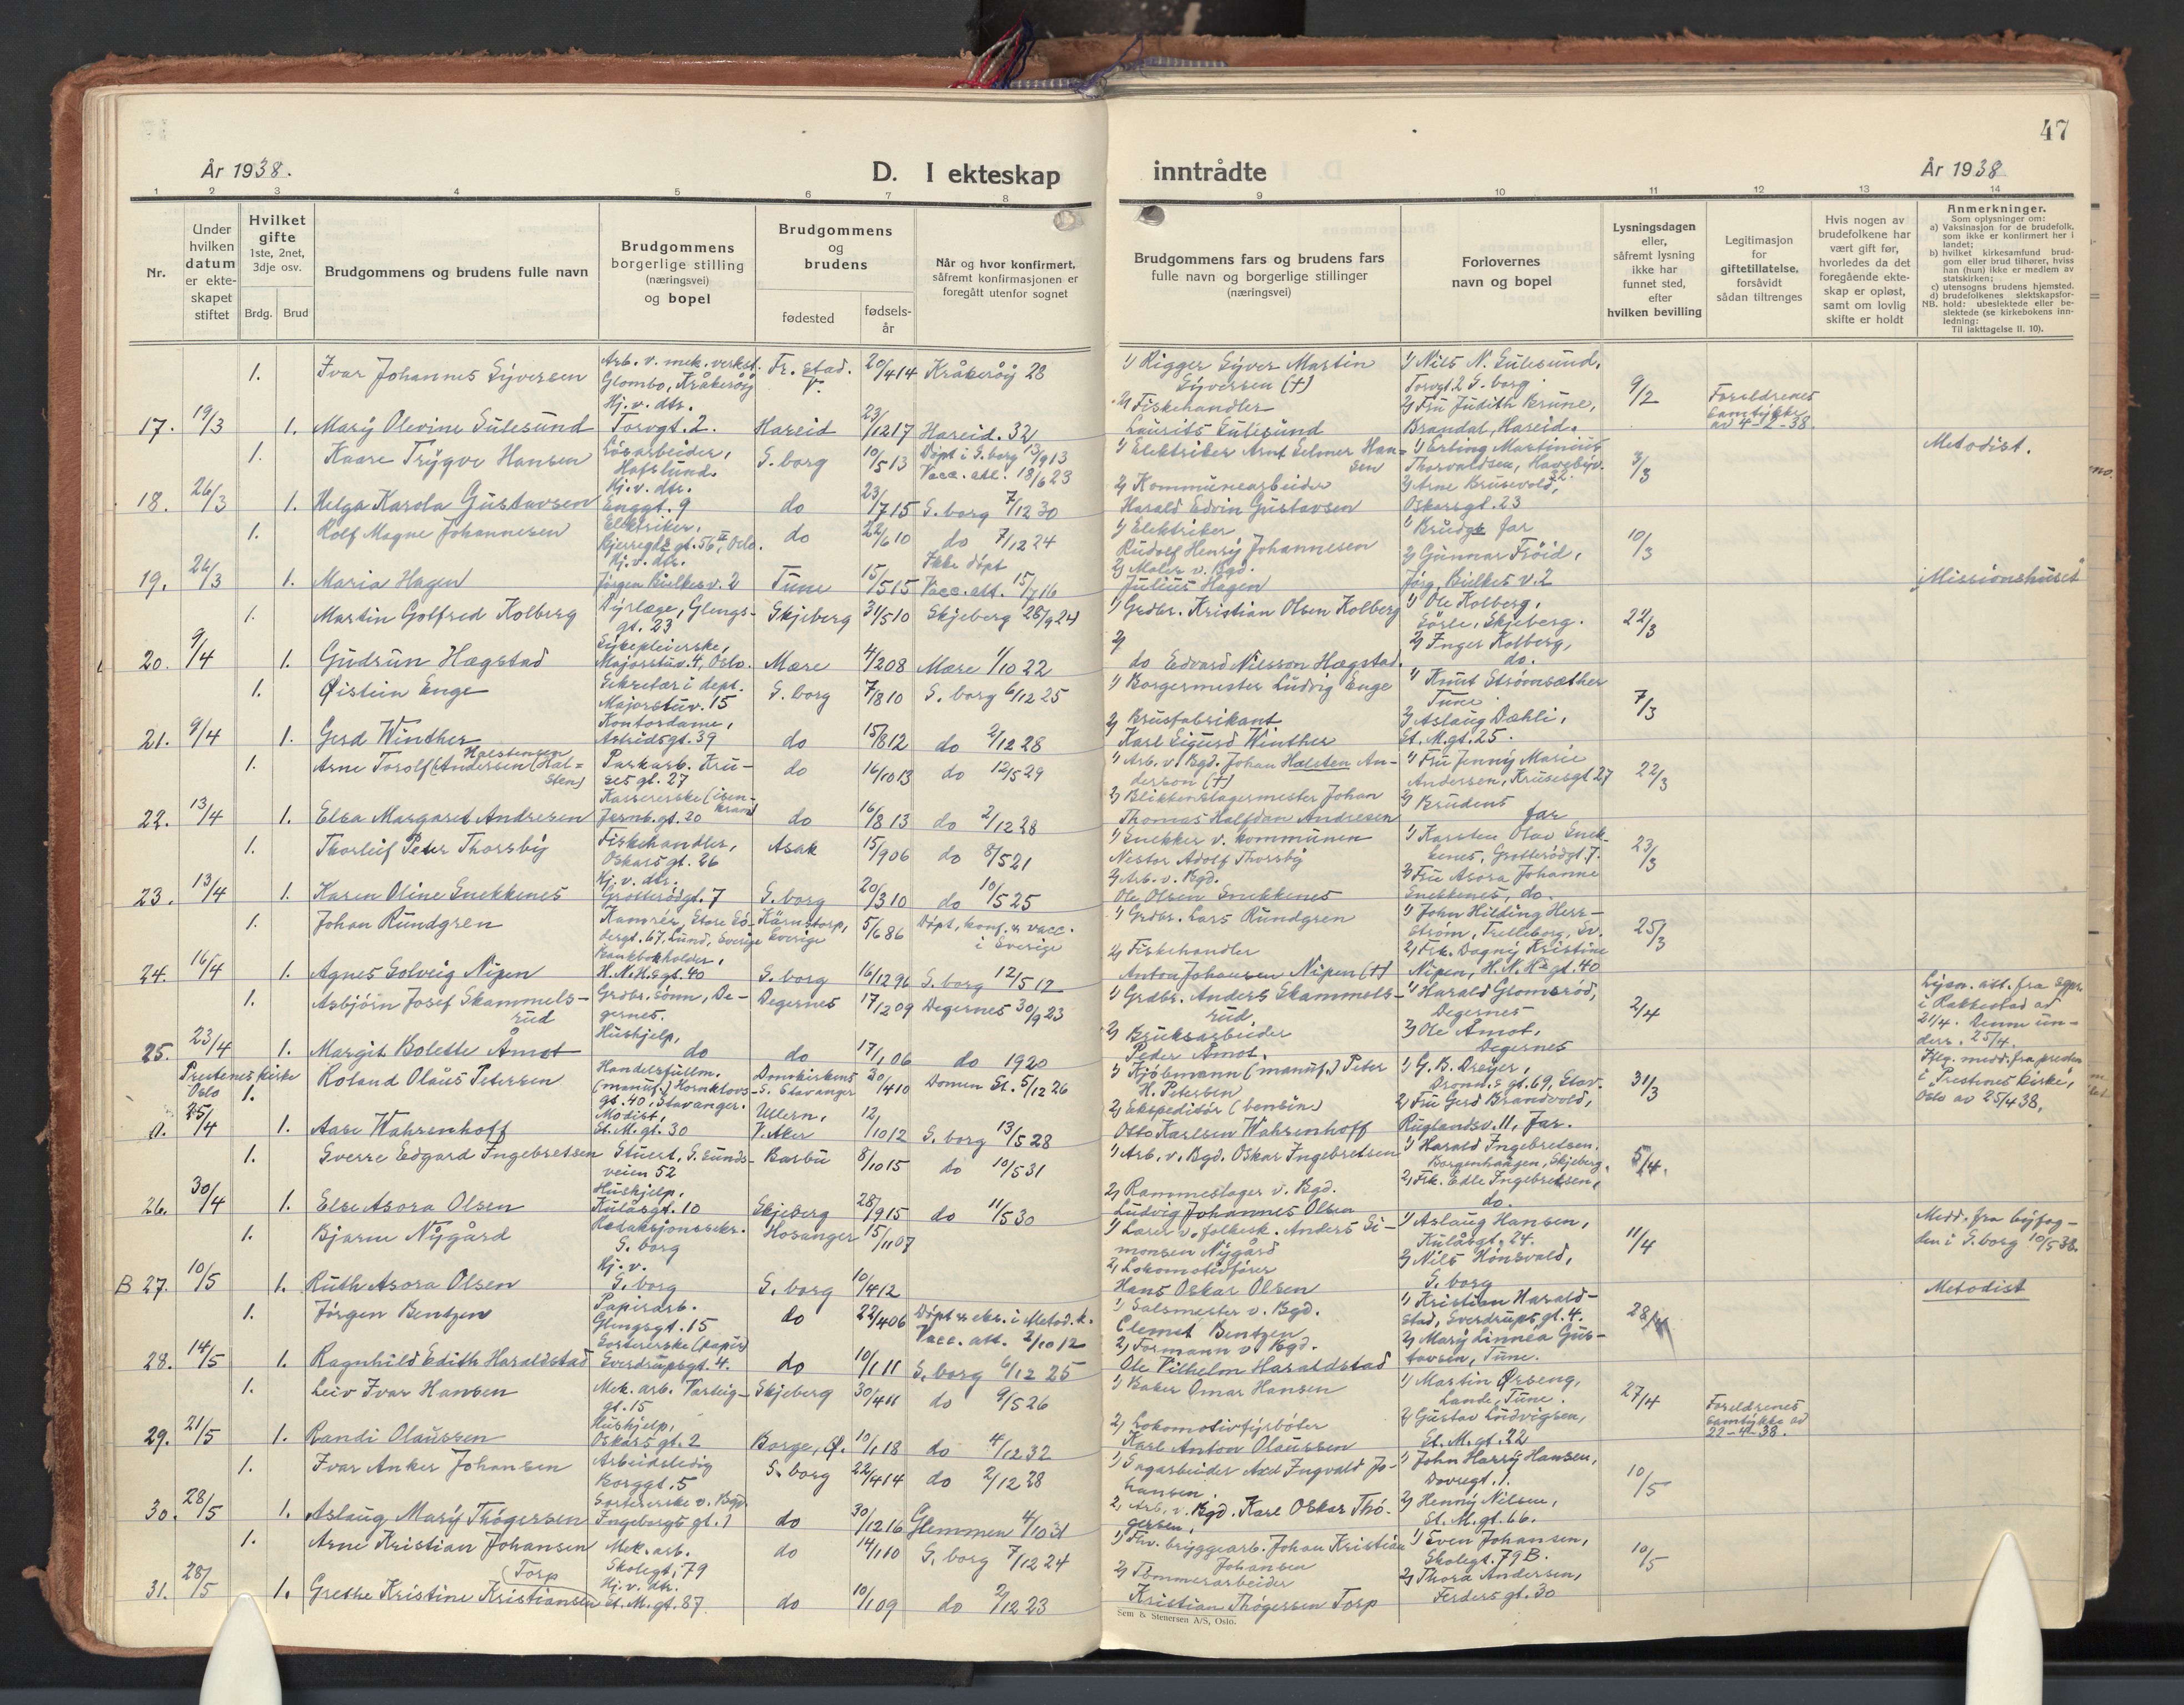 47
År 1938.
D. I ekteskap
inntrådte
År 1938
1 2 3 4 5 6 7 8 9 10 11 12 13 14
Nr.
Under hvilken datum er ekteskapet stiftet
Hvilket gifte 1ste, 2net, 3dje osv.
Brdg. Brud
Brudgommens og brudens fulle navn
Brudgommens borgerlige stilling (næringsvei) og bopel
Brudgommens og brudens
fødested
fødselsår
Når og hvor konfirmert, såfremt konfirmasjonen er foregått utenfor sognet
Brudgommens fars og brudens fars fulle navn og borgerlige stillinger (næringsvei)
Forlovernes navn og bopel
Lysningsdagen eller, såfremt lysning ikke har funnet sted, efter hvilken bevilling
Legitimasjon for giftetillatelse, forsåvidt sådan tiltrenges
Hvis nogen av brudefolkene har vært gift før, hvorledes da det foregående ekteskap er opløst, samt om lovlig skifte er holdt
Anmerkninger.
Som oplysninger om:
a) Vaksinasjon for de brudefolk, som ikke er konfirmert her i landet;
b) hvilket kirkesamfund brudgom eller brud tilhører, hviss han (hun) ikke er medlem av statskirken;
c) utensogns brudens hjemsted.
d) brudefolkenes slektskapsforhold: ubeslektede eller beslektede (se kirkebokens innledning:
NB.
Til iakttagelse II. 10).
1. Ivar Johannes Syversen Arb. v. mek. verkst. Glombo, Kråkerøy Fr.stad. V. 20/4 14 Kråkerøy 28 1) Rigger Syver Martin Syversen (†) 1) Nils N. Sulesund, Torvgt 2 S.borg. 9/2 Foreldrenes samtykke av 4-2-38.
17. 19/3 1. Mary Olevine Sulesund Hj. v. dtr. Torvgt. 2. Hareid 23/12 17 Hareid. 32 2) Fiskehandler Laurits Sulesund 2) Fru Judith Brune, Brandal, Hareid.
1. Kaare Trygve Hansen Løsarbeider, Hafslund. S.borg 10/5 13 Døpt i S.borg 13/9 13 Vacc. att. 18/6 23 1) Elektriker Arnt Selmer Hansen 1) Erling Martinius Thorvaldsen, Havebyv. 22. 3/3 Metodist.
18. 26/3 1. Helga Karola Gustavsen Hj. v. dtr. Enggt. 9 do 23/7 15 S.borg 7/12 30 2) Kommunearbeider Harald Edvin Gustavsen 2) Arne Brusevold, Oskarsgt. 23
1. Rolf Magne Johannesen Elektriker, Bjerregds gt. 56 II, Oslo. do 22/6 10 do 7/12 24 1) Elektriker Rudolf Henry Johannesen 1) Brudgs far 10/3
19. 26/3 1. Maria Hagen Hj. v. dtr. Jørgen Bielkes v. 2 Tune 15/5 15 Ikke døpt Vacc. att. 15/7 16 2) Maler v. Bgd. Julius Hagen 2) Gunnar Frøid, Jørg. Bielkes v. 2 "Missionshuset"
1. Martin Gotfred Kolberg Dyrlæge, Glengsgt. 23 Skjeberg 31/5 10 Skjeberg 28/9 24 1) Grdbr. Kristian Olsen Kolberg 1) Ole Kolberg, Sørle, Skjeberg. 22/3
20. 9/4 1. Gudrun Hægstad Sykepleierske, Majorstuv. 4, Oslo. Mære 4/2 08 Mære 1/10 22 2) do Edvard Nilsson Hægstad. 2) Inger Kolberg, do.
1. Øistein Enge Sekretær i dept. Majorstuv. 15 S.borg 7/8 10 S.borg 6/12 25 1) Borgermester Ludvig Enge 1) Knut Strømsæther Tune 7/3
21. 9/4 1. Gerd Winther Kontordame, Astridsgt. 39 do 15/8 12 do 2/12 28 2) Brusfabrikant Karl Sigurd Winther 2) Aslaug Dæhli, St. M.gt. 25.
1. Arne Torolf (Andersen (Halsten) Halstensen Parkarb. Krusesgt. 27 do 16/10 13 do 12/5 29 1) Arb. v. Bgd. Johan Halsten Anderson (†) 1) Fru Jenny Marie Andersen, Krusesgt 27 22/3
22. 13/4 1. Elsa Margaret Andresen Kassererske (isenkram) Jernb.gt. 20 do 16/8 13 do 2/12 28 2) Blikkenslagermester Johan Thomas Halfdan Andresen 2) Brudens far
1. Thorleif Peter Thorsby Fiskehandler, Oskarsgt. 26 Asak 15/9 06 do 8/5 21 1) Snekker v. kommunen Nestor Adolf Thorsby 1) Karsten Olav Snekkenes, Grotterødgt. 7. 23/3
23. 13/4 1. Karen Oline Snekkenes Hj. v. dtr. Grotterødgt. 7 S.borg 20/3 10 do 10/5 25 2) Arb. v. Bgd. Ole Olsen Snekkenes 2) Fru Asora Johanne Snekkenes, do.
1. Johan Rundgren Kamrér, Store Södergt. 67, Lund, Sverige Kärnstorp, Sverige 5/6 86 Døpt, konf. & vacc. i Sverige 1) Grdbr. Lars Rundgren 1) John Hilding Herrström, Trelleborg, Sv. 25/3
24. 16/4 1. Agnes Solveig Nipen Bankbokholder, H.N.H.sgt. 40 S.borg 16/12 96 S.borg 12/5 12 2) Fiskehandler Anton Johansen Nipen (†) 2) Frk. Dagny Kristine Nipen, H.N.Hs gt. 40
1. Asbjørn Josef Skammelsrud Grdbr. sønn, Degernes. Degernes 17/2 09 Degernes 30/9 23 1) Grdbr. Anders Skammelsrud 1) Harald Glomsrød, Degernes 2/4 Lysn. att. fra sgpr. i Rakkestad av 21/4. Denne underr. 25/4.
25. 23/4 1. Margit Bolette Åmot Hushjelp, do do 17/1 06 do 1920 2) Bruksarbeider Peder Åmot. 2) Ole Åmot, Degernes
Prestenes kirke Oslo 1. Roland Olaus Petersen Handelsfullm. (manuf.) Hornklovsgt. 40, Stavanger. Domkirkens S. Stavanger 30/4 10 Domen St. 5/12 26 1) Kjøbmann (manuf.) Peter H. Petersen 1) G. B. Dreyer, Dronn.s gt. 69, Stav. 31/3 Iflg. medd. fra presten i Prestenes kirke, Oslo av 25/4 38.
a. 25/4 1. Aase Wahrenhoff Modist, St. M.gt. 30 Ullern, V. Aker 12/10 12 S.borg 13/5 28 2) Ekspeditør (bensin) Otto Karlsen Wahrenhoff 2) Fru Gerd Brandvold, Ruglandsv. 11, Jar.
1. Sverre Edgard Ingebretsen Stuert, G. Sundsveien 52 Barbu 8/10 15 do 10/5 31 1) Arb. v. Bgd. Oskar Ingebretsen 1) Harald Ingebretsen. Borgenhaugen, Skjeberg. 5/4.
26. 30/4 1. Else Asora Olsen Hushjelp, Kulåsgt. 10 Skjeberg 28/9 15 do 11/5 30 2) Rammeslager v. Bgd. Ludvig Johannes Olsen 2) Frk. Edle Ingebretsen, do.
1. Bjarne Nygård Redaksjonssekr. S.borg Hosanger 15/11 07 1) Lærer v. folkesk. Anders Simonsen Nygård 1) Aslaug Hansen, Kulåsgt. 24. 11/4 Medd. fra byfogden i S.borg 10/5 38.
B 27. 10/5 1. Ruth Asora Olsen Hj. v. S.borg S.borg 10/4 12 2) Lokomotivfører Hans Oskar Olsen 2) Nils Hønsvald, S.borg Metodist
1. Jørgen Bentzen Papirarb. Glengsgt. 15 do 22/4 06 Døpt & eks. i Metod. k. Vacc. att. 2/10 12 1) Salsmester v. Bgd. Clemet Bentzen 1) Kristian Haraldstad, Sverdrupsgt. 4. 28/4
28. 14/5 1. Ragnhild Edith Haraldstad Sortererske (papir) Sverdrupsgt. 4. do 10/1 11 S.borg 6/12 25 2) Formann v. Bgd. Ole Vilhelm Haraldstad 2) Mary Linnéa Gustavsen, Tune.
1. Leiv Ivar Hansen Mek. arb. Varteiggt. 15 Skjeberg 30/4 11 do 9/5 26 1) Baker Omar Hansen 1) Martin Ørseng, Lande, Tune. 27/4 Foreldrenes samtykke av 22-4-38.
29. 21/5 1. Randi Olaussen Hushjelp, Oskarsgt. 2 Borge, Ø. 10/1 18 do 4/12 32 2) Lokomotivfyrbøter Karl Anton Olaussen 2) Gustav Ludvigsen, St. M.gt. 22
1. Ivar Anker Johansen Arbeidsledig Borggt. 5 S.borg 22/4 14 do 2/12 28 1) Sagarbeider Axel Ingvald Johansen 1) John Harry Hansen, Dovregt. 1. 10/5
30. 28/5 1. Aslaug Mary Thøgersen Sortererske v. Bgd. Ingeborgs gt. 1 do 30/12 16 Glemmen 4/10 31 2) Arb. v. Bgd. Karl Oskar Thøgersen. 2) Henny Nilsen, St. M.gt. 66.
1. Arne Kristian Johansen Mek. arb. Skolegt. 79 do 14/1 10 S.borg 7/12 24 1) Fhv. bryggearb. Johan Kristian Johansen 1) Even Johansen, Skolegt. 79 B. 10/5
31. 28/5 1. Grethe Kristine Kristiansen (Torp Hj. v. dtr. St. M.gt. 87. do 10/1 09 do 2/12 23 2) Tømmerarbeider Kristian Thøgersen Torp 2) Thora Andersen, Ferdersgt. 30
Sem & Stenersen A/S, Oslo.